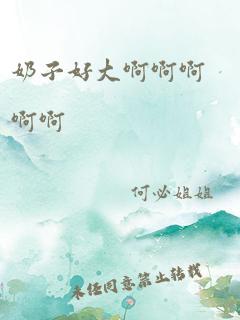 奶子好大啊啊啊
啊啊
何必姐姐
未经同意禁止转载